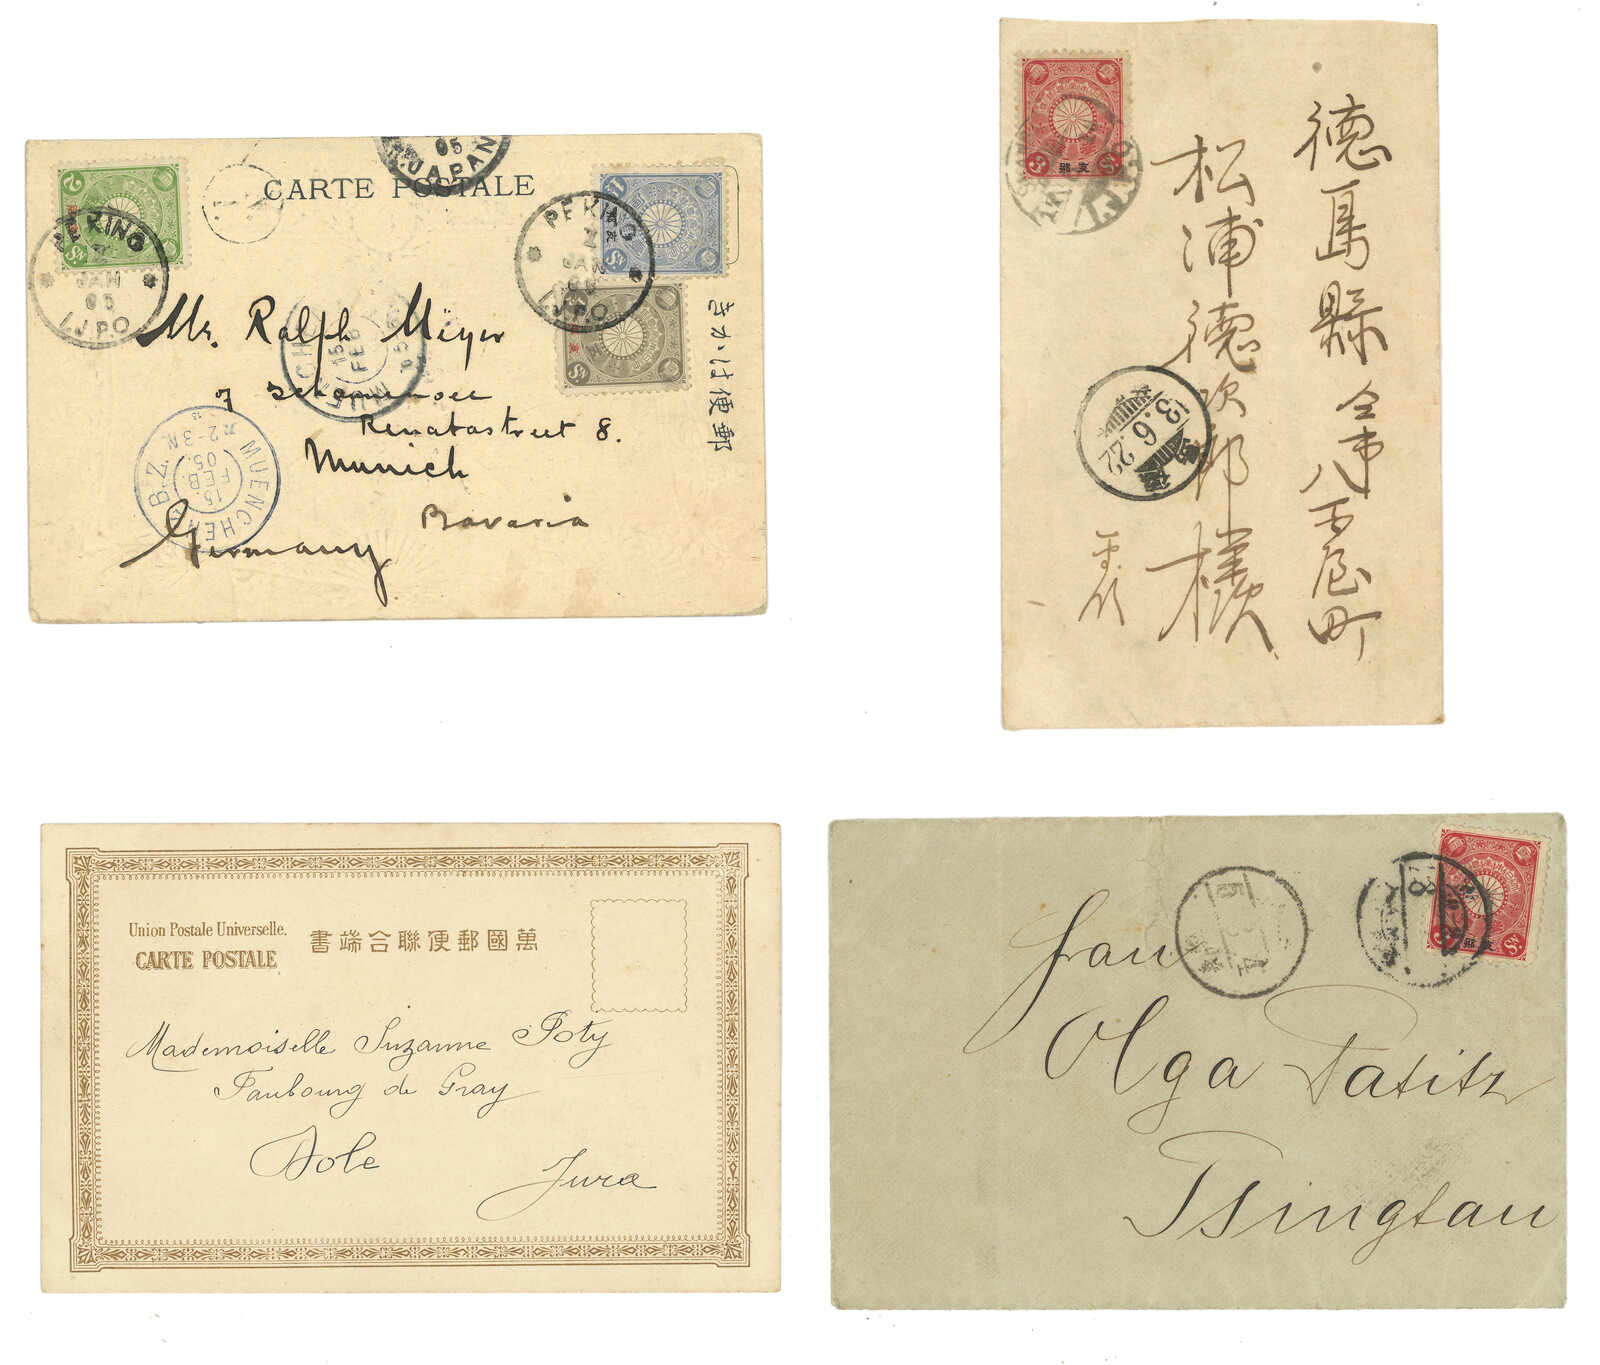 CARTE POSTALE
05
JAPAN
PEKING
JAN
05
I.J.P.O
PEKING
JAN
05
I.J.P.O
支那
Mr. Ralph Meyer
Renatastreet 8.
Munich
Bavaria
Germany
きかは便郵
MUENCHEN B.Z.
15.
FEB.
05.
N. 2-3
15
FEB
德島縣
八百屋町
松浦德次郎様
支那
3.6.22
Union Postale Universelle.
CARTE POSTALE
萬國郵便聯合端書
Mademoiselle Suzanne Poty
Faubourg de Gray
Dole
Jura
支那
Frau
Olga Tatitz
Tsingtau